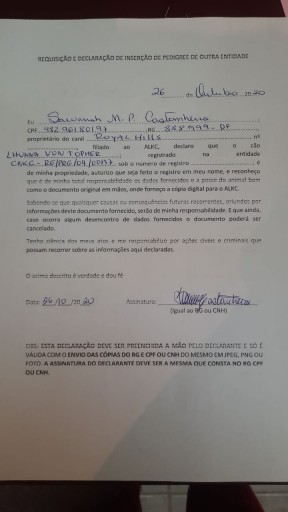 REQUISIÇÃO E DECLARAÇÃO DE INSERÇÃO DE PEDIGREE DE OUTRA ENTIDADE
26 de Outubro de 20 20
Eu Savannah M. P. Castanheira
CPF RG DF
proprietário do canil ROYAL HILLS nº
filiado ao ALKC, declaro que o cão
LHUNNA VON TOPHER, registrado na entidade
sob o número de registro é
de minha propriedade, autorizo que seja feito o registro em meu nome, e reconheço
que é de minha total responsabilidade os dados fornecidos e a posse do animal bem
como o documento original em mãos, onde forneço a cópia digital para o ALKC.
Sabendo-se que quaisquer causas ou consequências futuras recorrentes, oriundos por
informações deste documento fornecido, serão de minha responsabilidade. E que ainda,
caso ocorra algum desencontro de dados fornecidos o documento poderá ser
cancelado.
Tenho ciência dos meus atos e me responsabilizo por ações civeis e criminais que
possam recorrer sobre as informações aqui declaradas.
O acima descrito é verdade e dou fé
Data: 26/10/20 20 Assinatura: Castanheira
(Igual ao RG ou CNH)
OBS: ESTA DECLARAÇÃO DEVE SER PREENCHIDA A MÃO PELO DECLARANTE E SÓ É
VÁLIDA COM O ENVIO DAS CÓPIAS DO RG E CPF OU CNH DO MESMO EM JPEG, PNG OU
FOTO. A ASSINATURA DO DECLARANTE DEVE SER A MESMA QUE CONSTA NO RG CPF
OU CNH.